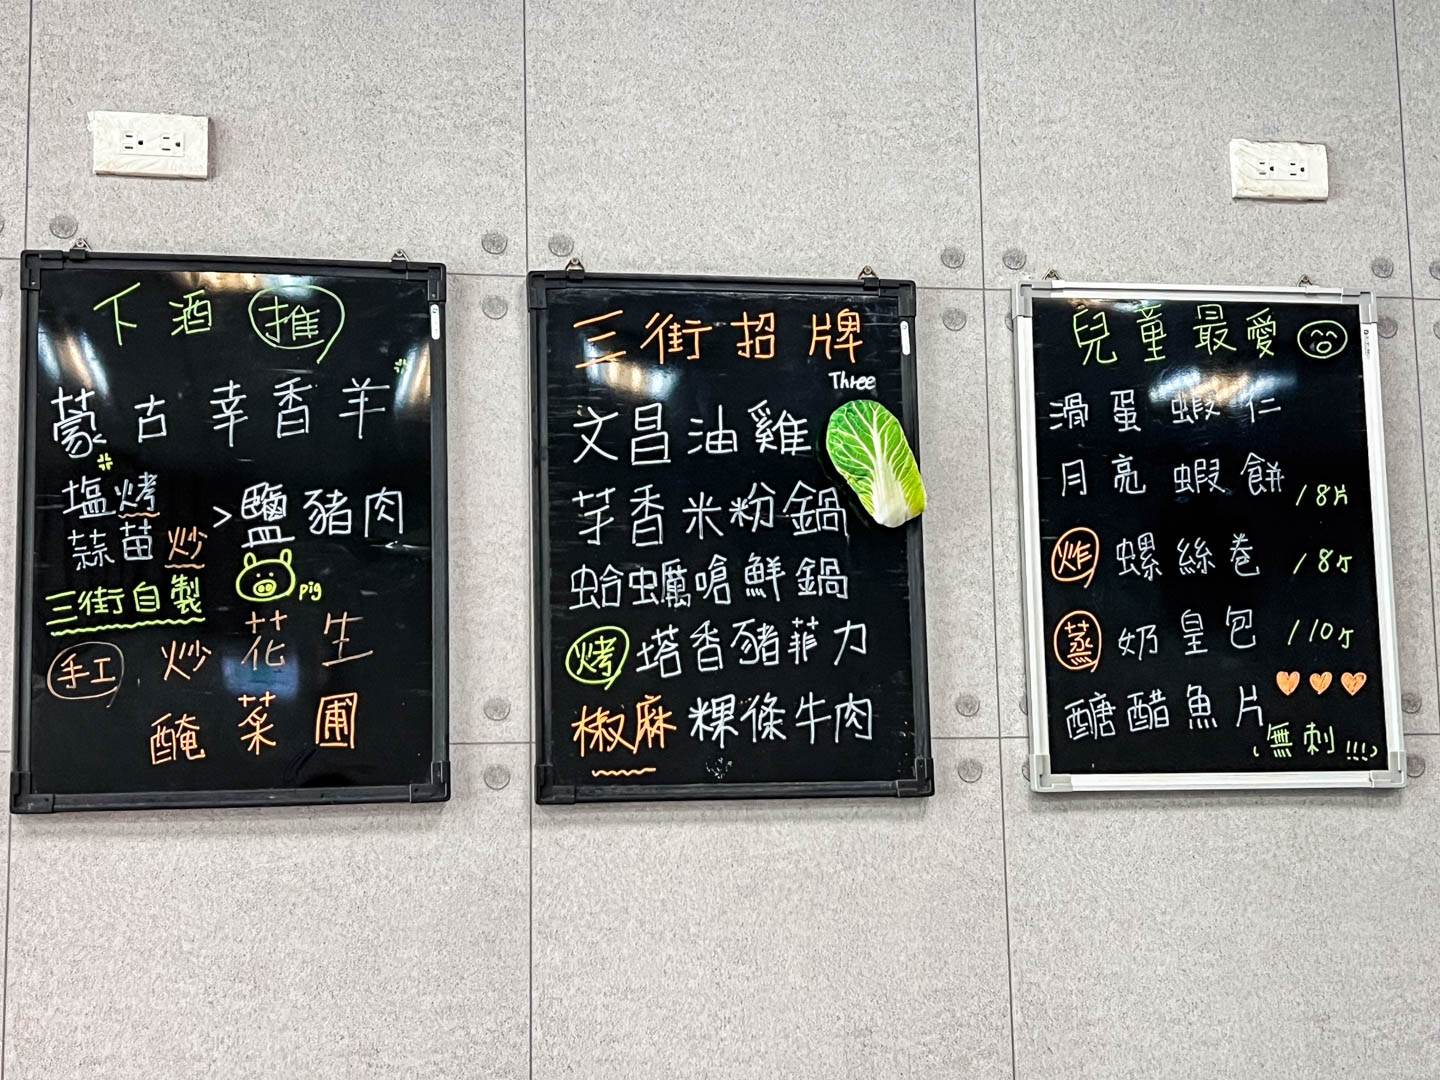 下酒 推
蒙古孜香羊
塩烤
蒜苗炒 >鹽豬肉
pig
三街自製
手工 炒花生
醃菜圃
三街招牌
Three
文昌油雞
芋香米粉鍋
蛤蠣嗆鮮鍋
烤 塔香豬菲力
椒麻粿條牛肉
兒童最愛
滑蛋蝦仁
月亮蝦餅 /8片
炸 螺絲卷 /8ケ
蒸 奶皇包 /10ケ
醣醋魚片
(無刺!!!)